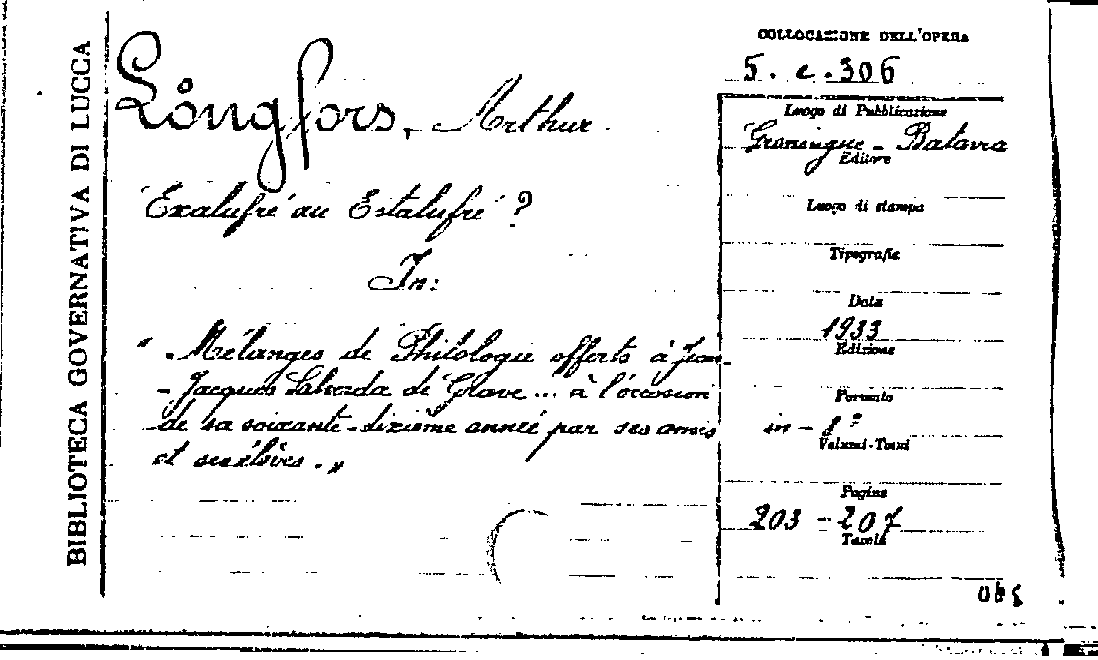 BIBLIOTECA GOVERNATIVA DI LUCCA
Långfors, Arthur.
"Exalufré" au Estalufré"?
In:
"Mélanges de Philologie offerts à Jean-
-Jacques Salverda de Grave... à l'occasion
de sa soixante-dixième année par ses amis
et ses élèves."
COLLOCAZIONE DELL'OPERA
5. c. 306
Luogo di Pubblicazione
Groningue - Batavia
Editore
Luogo di stampa
Tipografie
Data
1933
Edizione
Formato
in-8°
Volumi-Tomi
Pagine
203-207
Tavole